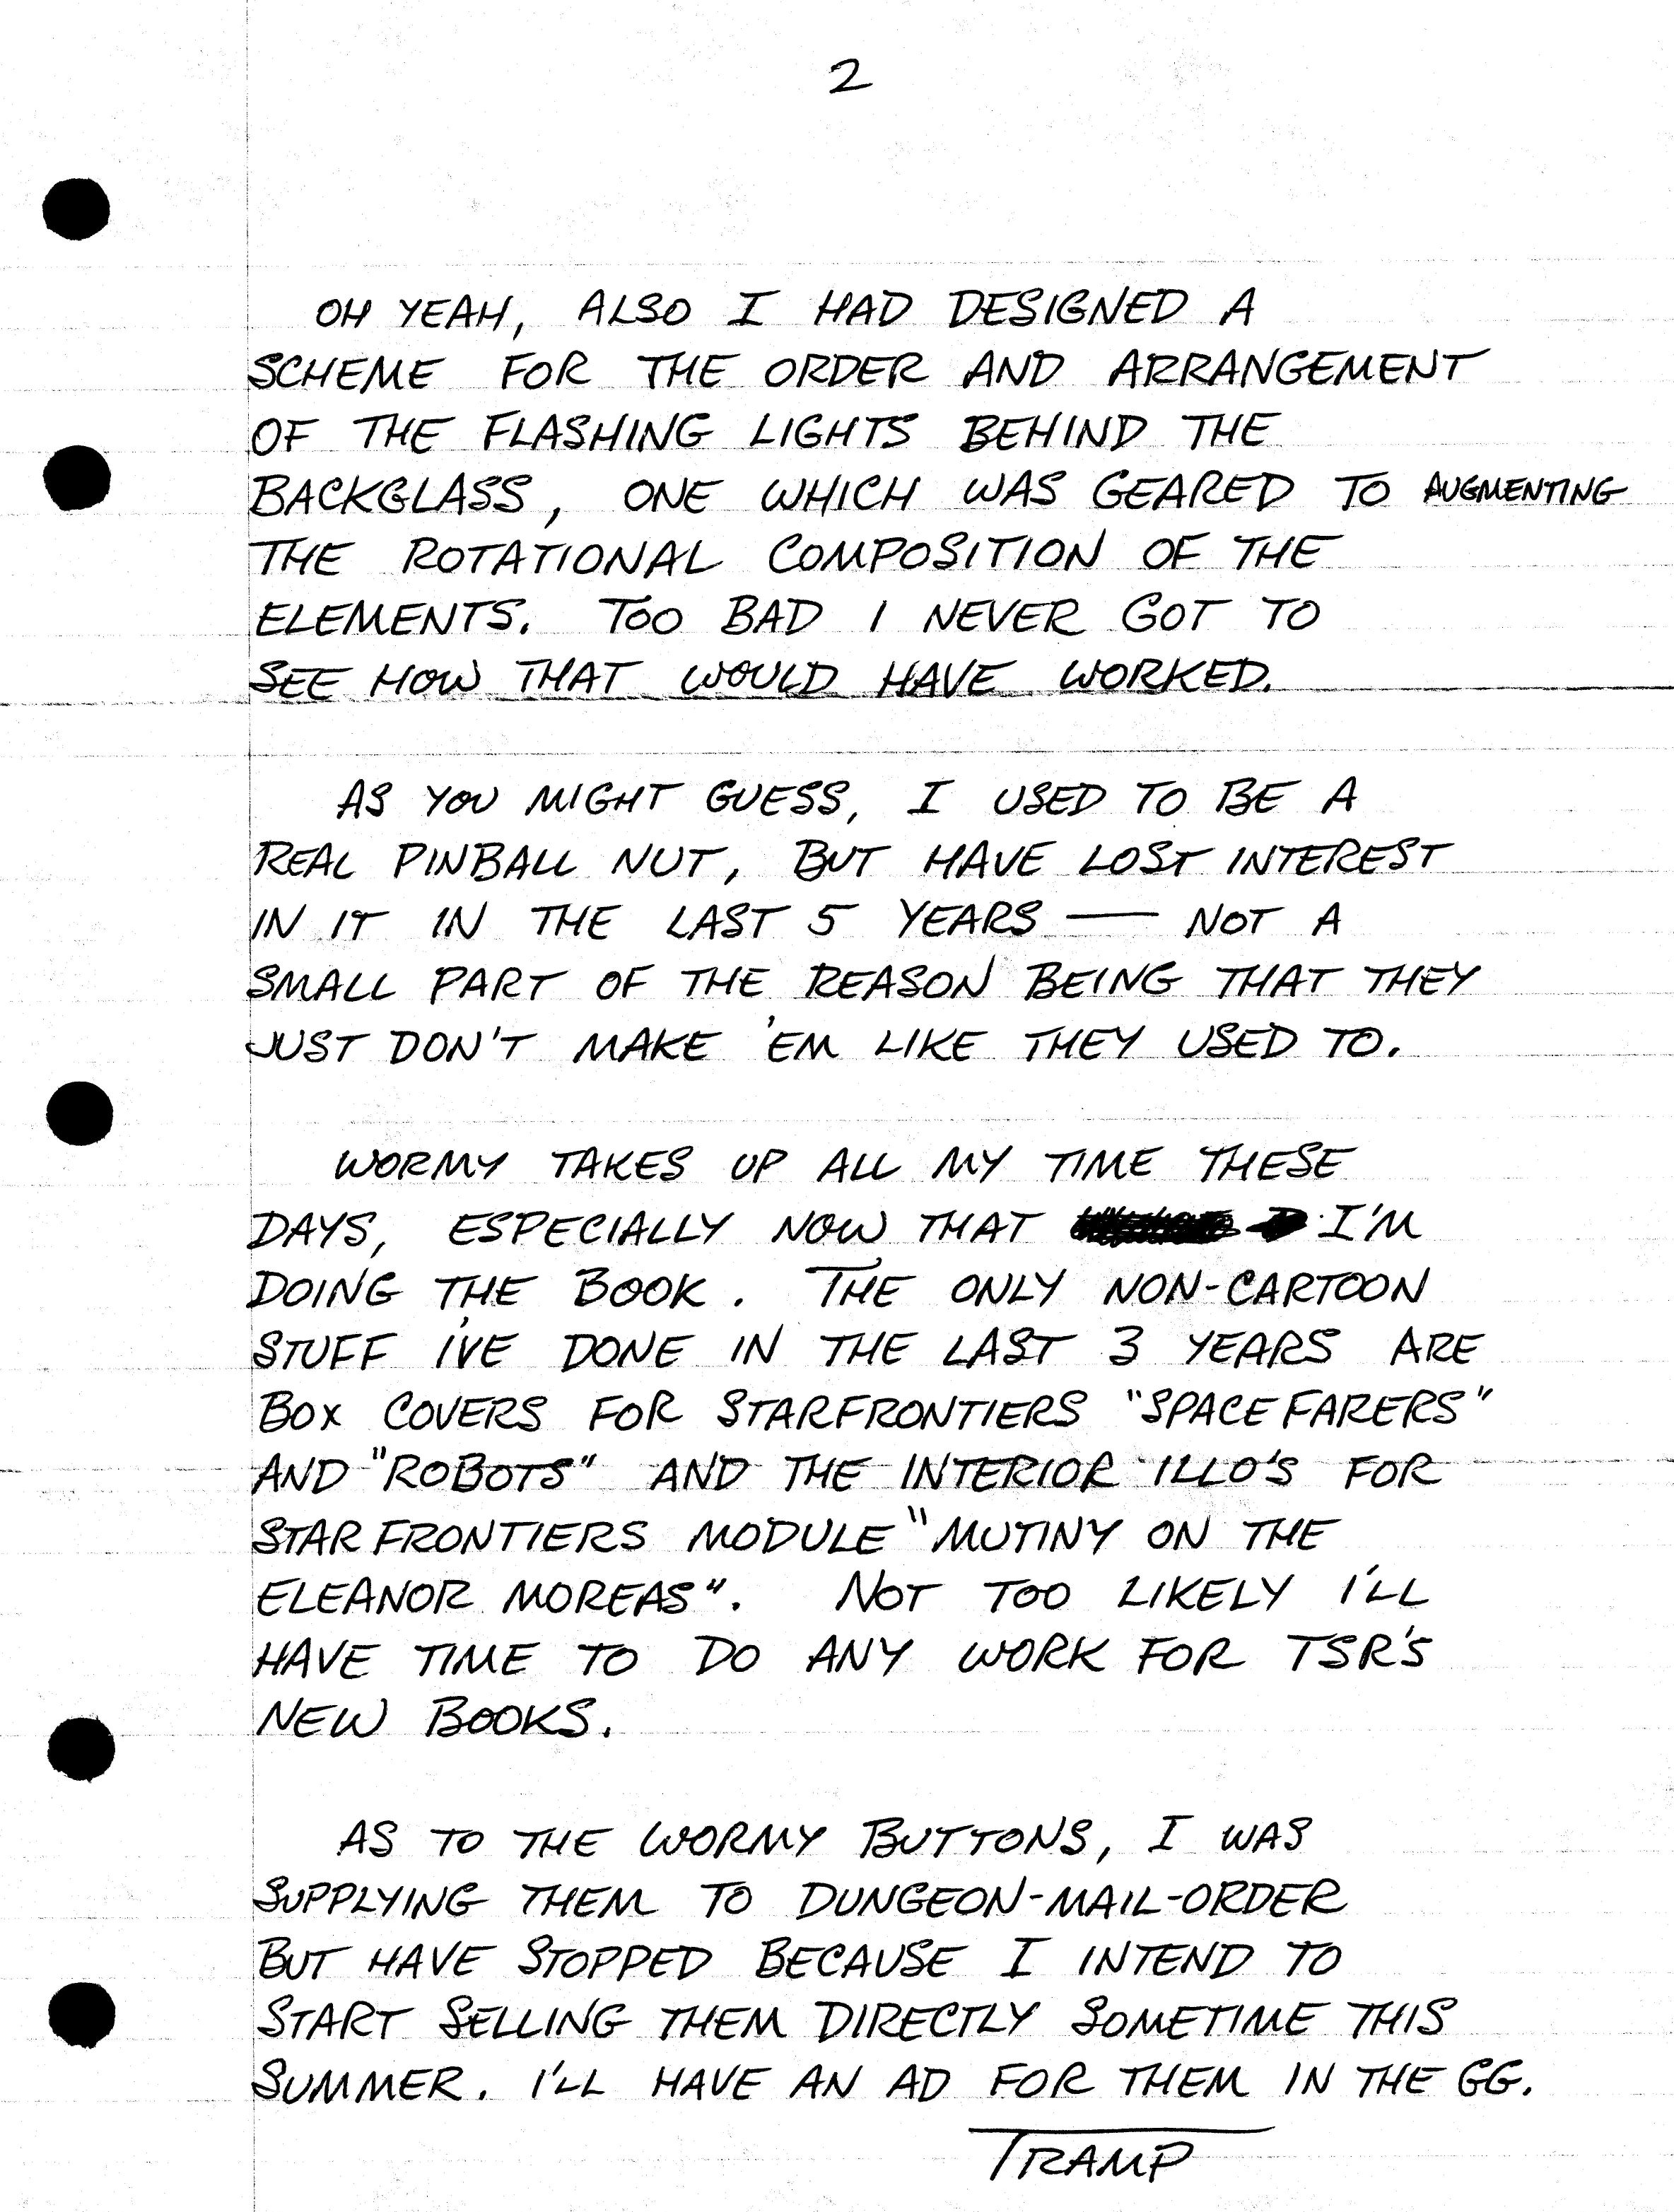 2
OH YEAH, ALSO I HAD DESIGNED A
SCHEME FOR THE ORDER AND ARRANGEMENT
OF THE FLASHING LIGHTS BEHIND THE
BACKGLASS, ONE WHICH WAS GEARED TO AUGMENTING
THE ROTATIONAL COMPOSITION OF THE
ELEMENTS. TOO BAD I NEVER GOT TO
SEE HOW THAT WOULD HAVE WORKED.
AS YOU MIGHT GUESS, I USED TO BE A
REAL PINBALL NUT, BUT HAVE LOST INTEREST
IN IT IN THE LAST 5 YEARS — NOT A
SMALL PART OF THE REASON BEING THAT THEY
JUST DON'T MAKE 'EM LIKE THEY USED TO.
WORMY TAKES UP ALL MY TIME THESE
DAYS, ESPECIALLY NOW THAT I'M
DOING THE BOOK. THE ONLY NON-CARTOON
STUFF I'VE DONE IN THE LAST 3 YEARS ARE
BOX COVERS FOR STARFRONTIERS "SPACE FARERS"
AND "ROBOTS" AND THE INTERIOR ILLO'S FOR
STAR FRONTIERS MODULE "MUTINY ON THE
ELEANOR MOREAS". NOT TOO LIKELY I'LL
HAVE TIME TO DO ANY WORK FOR TSR'S
NEW BOOKS.
AS TO THE WORMY BUTTONS, I WAS
SUPPLYING THEM TO DUNGEON-MAIL-ORDER
BUT HAVE STOPPED BECAUSE I INTEND TO
START SELLING THEM DIRECTLY SOMETIME THIS
SUMMER. I'LL HAVE AN AD FOR THEM IN THE GG.
TRAMP